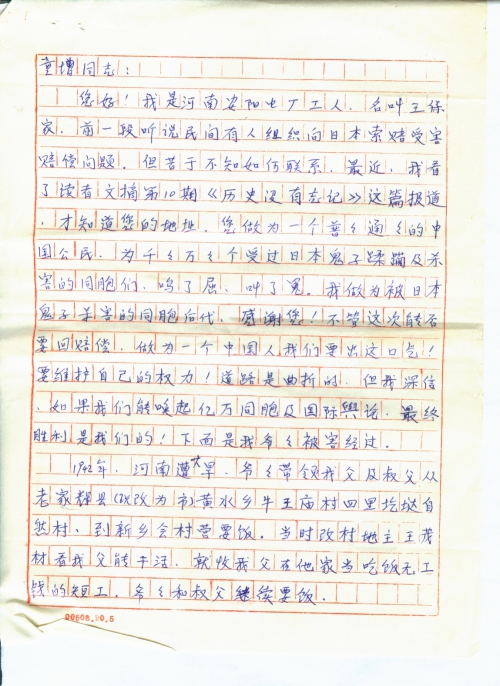 童增同志：
您好！我是河南安阳电厂工人．名叫王保
家．前一段听说民间有人组织向日本索赔受害
赔偿问题．但苦于不知如何联系．最近．我看
了读者文摘第10期《历史没有忘记》这篇报道
．才知道您的地址．您做为一个普々通々的中
国公民．为千々万々个受过日本鬼子蹂躏及杀
害的同胞们．鸣了屈．叫了冤。我做为被日本
鬼子杀害的同胞后代．感谢您！不管这次能否
要回赔偿．做为一个中国人我们要出这口气！
要维护自己的权力！道路是曲折的．但我深信
．如果我们能唤起亿万同胞及国际舆论．最终
胜利是我们的！下面是我爷々被害经过．
1942年．河南遭大旱．爷々带领我父及叔父从
老家辉县(以改为市)黄水乡牛王庙村四里圪垯自
然村．到新乡合村营要饭．当时改村地主王茂
材看我父能干活．就收我父在他家当吃饭无工
钱的短工．爷々和叔父继续要饭．
00608.90.5